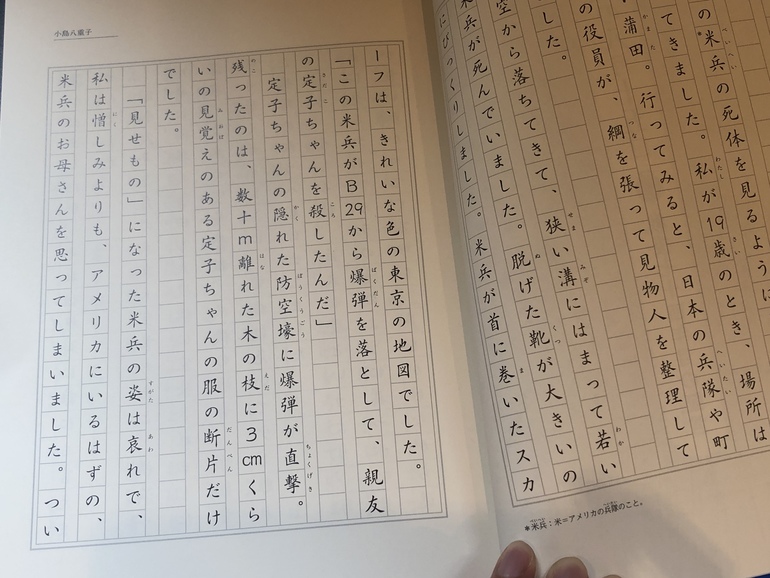 の米兵の死体を見るように
てきました。私が19歳のとき、場所は
蒲田。行ってみると、日本の兵隊や町
の役員が、綱を張って見物人を整理して
した。
空から落ちてきて、狭い溝にはまって若い
兵が死んでいました。脱げた靴が大きいの
にびっくりしました。米兵が首に巻いたスカ
*米兵:米=アメリカの兵隊のこと。
小島八重子
ーフは、きれいな色の東京の地図でした。
「この米兵がB29から爆弾を落として、親友
の定子ちゃんを殺したんだ」
定子ちゃんの隠れた防空壕に爆弾が直撃。
残ったのは、数十m離れた木の枝に3cmくら
いの見覚えのある定子ちゃんの服の断片だけ
でした。
「見せもの」になった米兵の姿は哀れで、
私は憎しみよりも、アメリカにいるはずの、
米兵のお母さんを思ってしまいました。つい